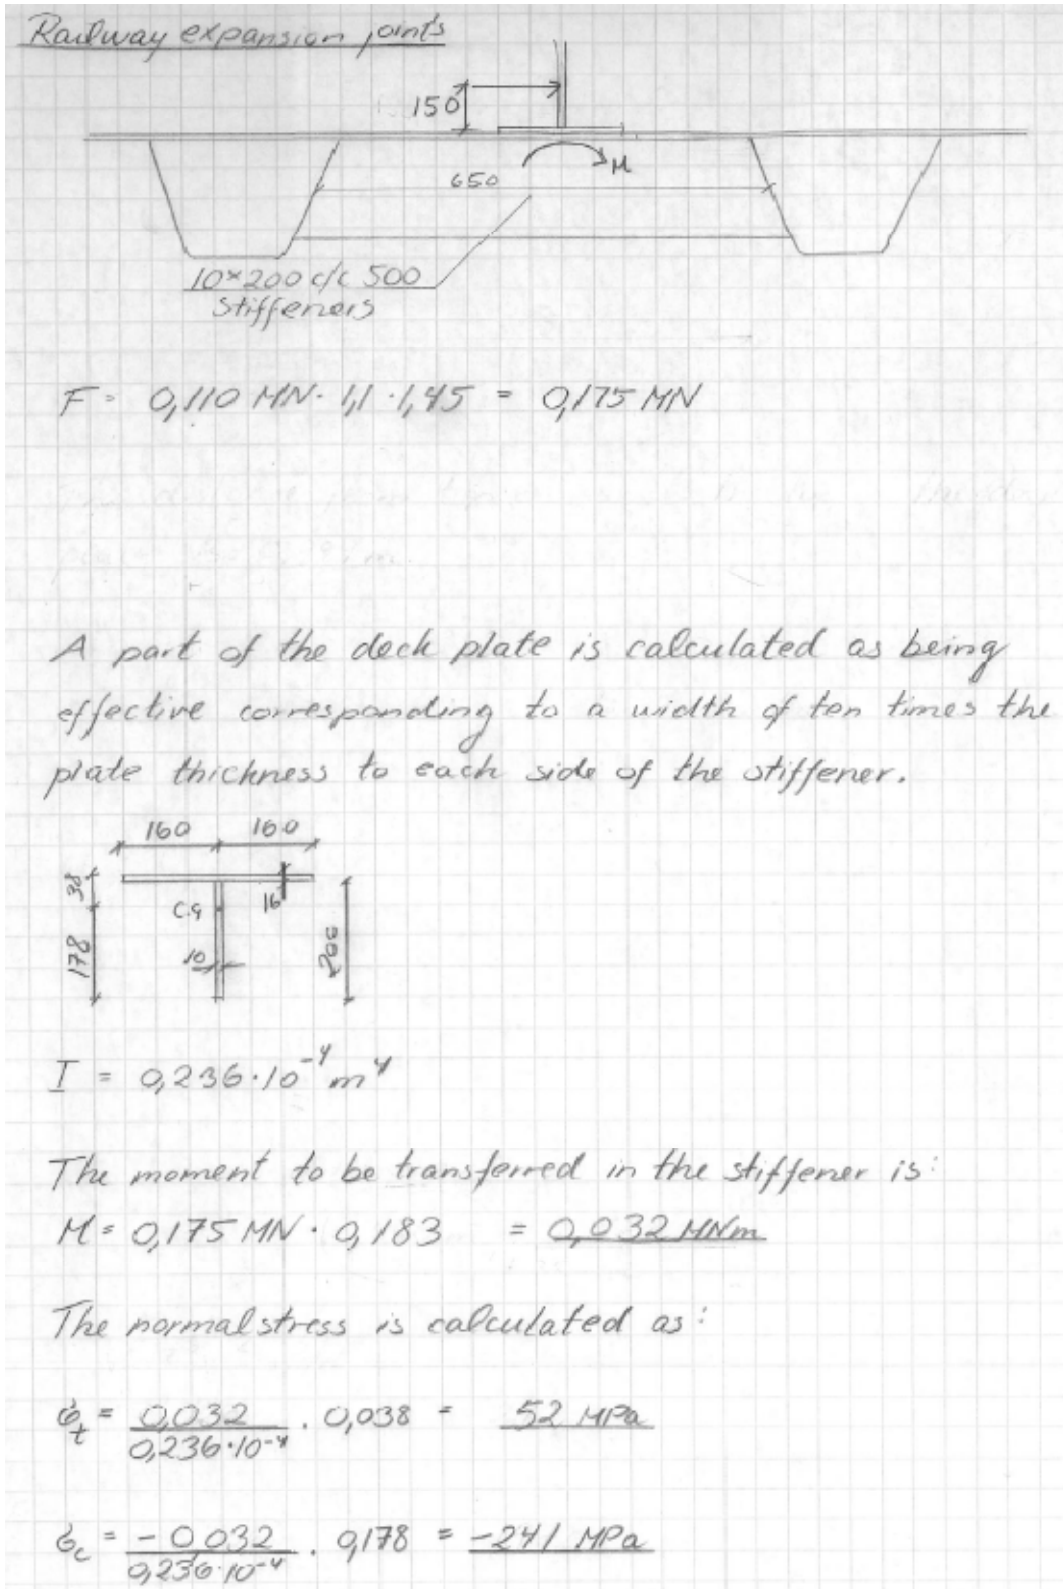 Railway expansion joints
150
M
650
10×200 c/c 500
stiffeners
F = 0,110 MN · 1,1 · 1,45 = 0,175 MN
A part of the deck plate is calculated as being
effective corresponding to a width of ten times the
plate thickness to each side of the stiffener.
160 160
38
C.G 16
178 10 200
I = 0,236·10⁻⁴ m⁴
The moment to be transferred in the stiffener is:
M = 0,175 MN · 0,183 = 0,032 MNm
The normal stress is calculated as:
σt = 0,032 / 0,236·10⁻⁴ · 0,038 = 52 MPa
σc = -0,032 / 0,236·10⁻⁴ · 0,178 = -241 MPa